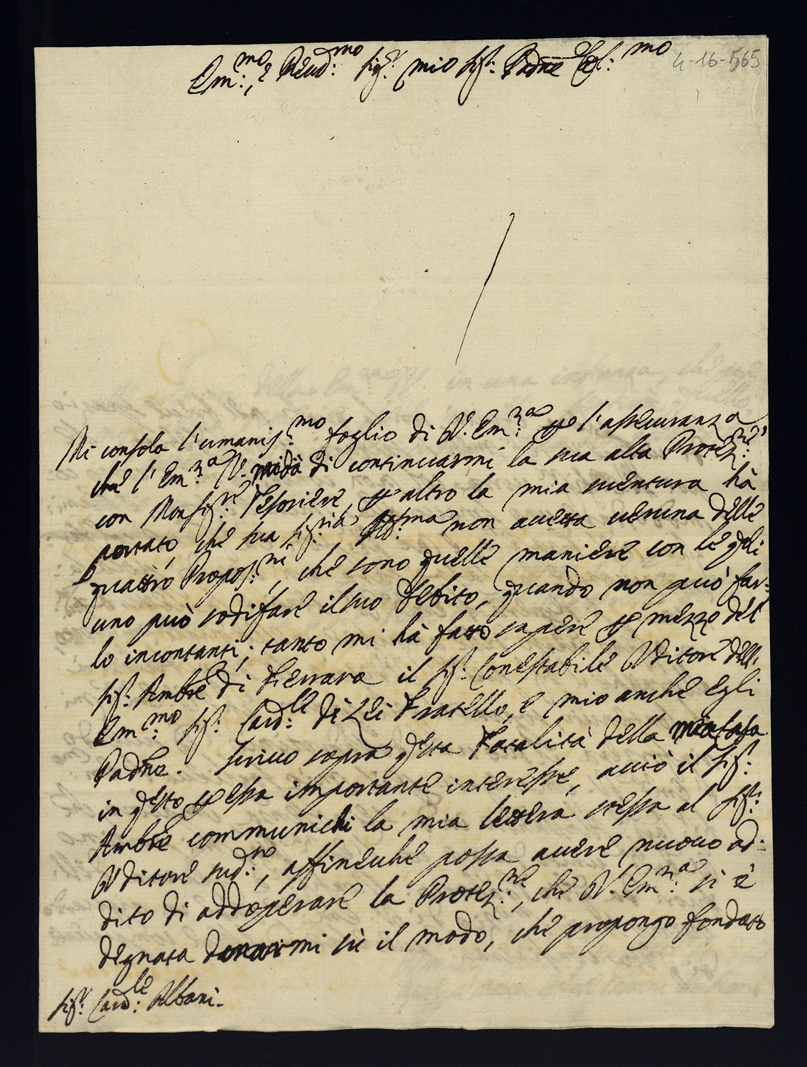 Em:mo, e Reud:mo Sig:r mio Sig: Padne Col:mo
4-16-565
Mi consola l'umaniss:mo foglio di V. Em:za per l'assecuranza
che l'Em:za V. mi dà di continuarmi la sua alta Protez:ne
con Monsig:re Tesoriere per altro la mia suentura hà
portato, che sua Sig:ria Ill:ma non accetta ueruna delle
quattro Propos:ni, che sono quelle maniere con le quali
uno può sodisfare il suo debito, quando non può far-
lo incontanti; tanto mi hà fatto sapere per mezzo del
Sig: Ambre di Ferrara il Sig: Conestabile Uditore dell'
Em:mo Sig: Card:le di Lei Fratello, e mio anche egli
Padne. Scriuo sopra questa Fatalità della mia Casa
in questo per essa importante interesse, acciò il Sig:
Ambre communichi la mia lettera stessa al Sig:
Uditore sud:to, affinche possa auere nuouo ad-
dito di addoperare la Protez:ne, che V. Em:za si è
degnata donarmi sù il modo, che propongo fondato
Sig: Card:le Albani.